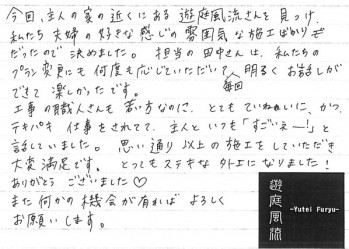 今回、主人の家の近くにある 遊庭風流さんを見つけ、
私たち夫婦の好きな感じの雰囲気な施工ばかり
だったので 決めました。 担当の田中さんは、私たちの
プラン変更にも 何度も応じていただいて 毎回 明るくお話しが
できて 楽しかったです。
工事の職人さんも 若い方なのに、とてもていねいに、かつ、
テキパキ 仕事をされてて、主人と いつも「すごいえー!」と
話していました。 思い通り以上の施工をしていただき
大変満足です。 とってもステキな外工になりました!
ありがとう ございました♡
また何かの機会が有れば よろしく
お願いします。
遊庭風流
-Yutei Furyu-